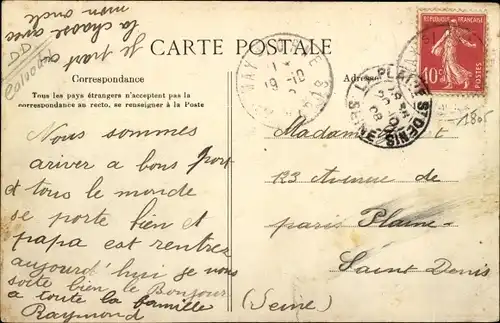 CARTE POSTALE
Correspondance
Tous les pays étrangers n'acceptent pas la
correspondance au recto, se renseigner à la Poste
Nous sommes
ariver a bons port
et tous le monde
se porte bien et
papa est rentrez
aujourd'hui je vous
soite bien le Bonjour
a toute la famille
Raymond
je part a
la chasse avec
mon oncle
REPUBLIQUE FRANÇAISE
10c
POSTES
LA PLAINE ST DENIS
SEINE
19-10
Madame
123 Avenue de
paris Plaine
Saint Denis
(Seine)
180